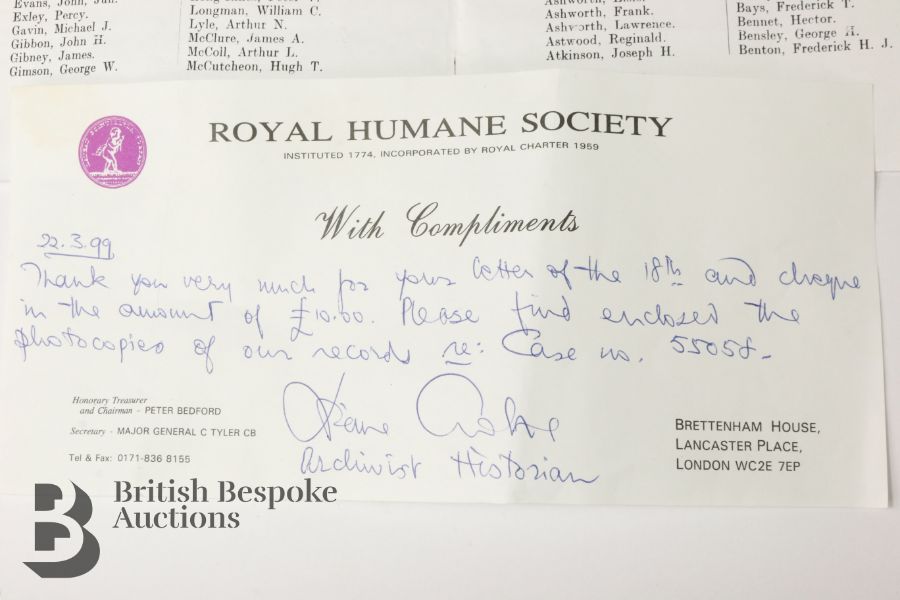 Exley, Percy.
Gavin, Michael J.
Gibbon, John H.
Gibney, James.
Gimson, George W.
Longman, William C.
Lyle, Arthur N.
McClure, James A.
McColl, Arthur L.
McCutcheon, Hugh T.
Ashworth, Frank.
Ashworth, Lawrence.
Astwood, Reginald.
Atkinson, Joseph H.
Bays, Frederick T.
Bennet, Hector.
Bensley, George H.
Benton, Frederick H. J.
ROYAL HUMANE SOCIETY
INSTITUTED 1774, INCORPORATED BY ROYAL CHARTER 1959
With Compliments
22.3.99
Thank you very much for your letter of the 18th and cheque
in the amount of £10.00. Please find enclosed the
photocopies of our records re: Case no. 55058-
Honorary Treasurer
and Chairman - PETER BEDFORD
Secretary - MAJOR GENERAL C TYLER CB
Tel & Fax: 0171-836 8155
Diane
Archivist Historian
BRETTENHAM HOUSE,
LANCASTER PLACE,
LONDON WC2E 7EP
British Bespoke
Auctions